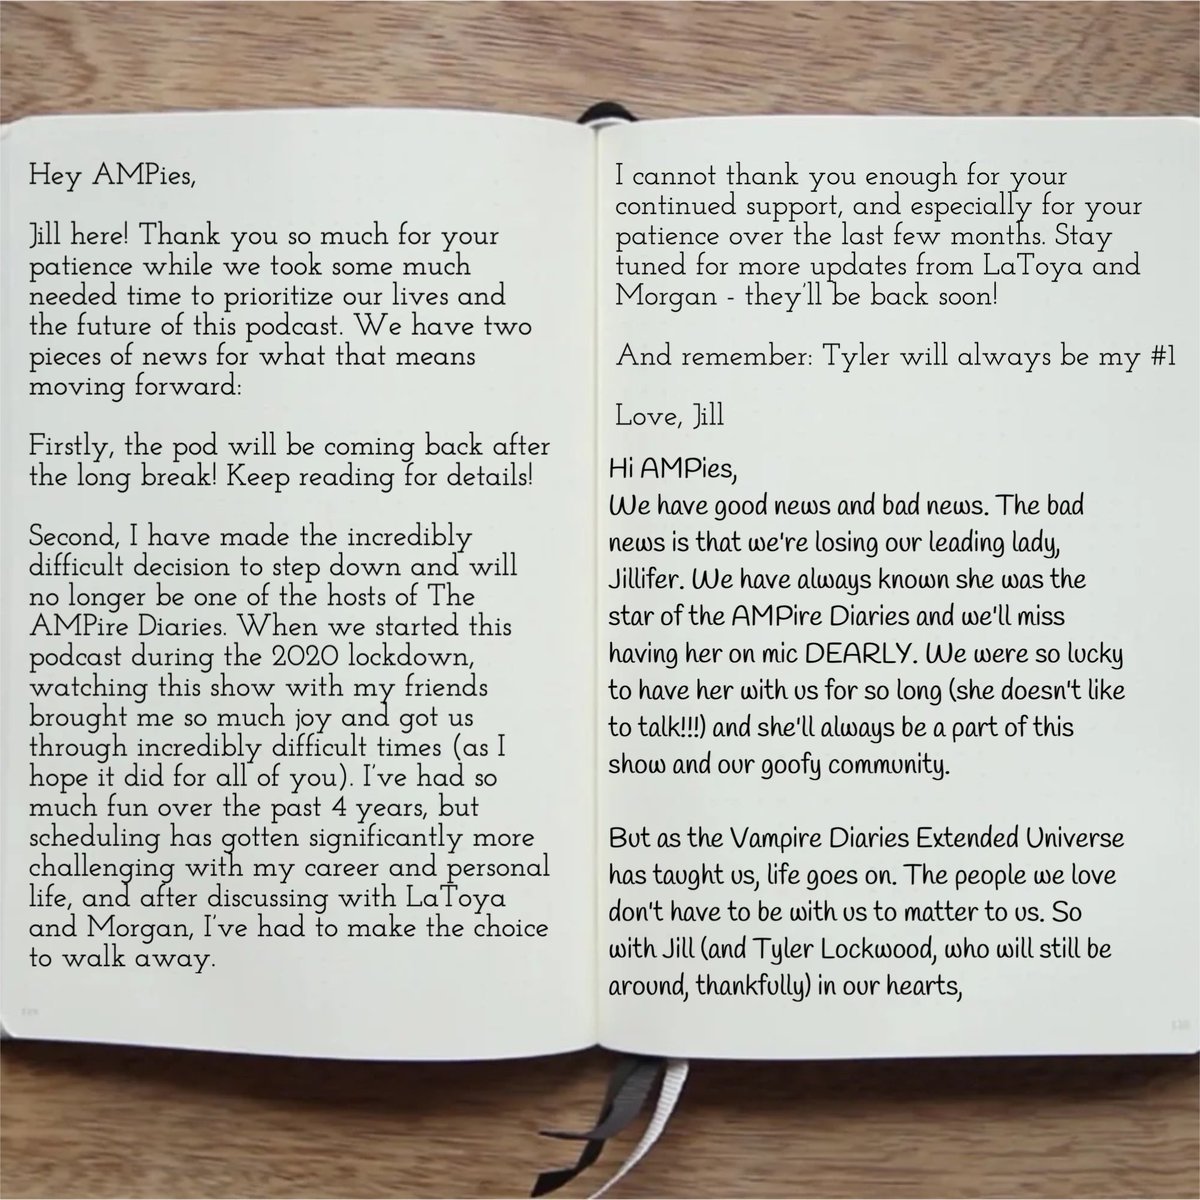 Hey AMPies,
Jill here! Thank you so much for your
patience while we took some much
needed time to prioritize our lives and
the future of this podcast. We have two
pieces of news for what that means
moving forward:
Firstly, the pod will be coming back after
the long break! Keep reading for details!
Second, I have made the incredibly
difficult decision to step down and will
no longer be one of the hosts of The
AMPire Diaries. When we started this
podcast during the 2020 lockdown,
watching this show with my friends
brought me so much joy and got us
through incredibly difficult times (as I
hope it did for all of you). I've had so
much fun over the past 4 years, but
scheduling has gotten significantly more
challenging with my career and personal
life, and after discussing with LaToya
and Morgan, I've had to make the choice
to walk away.
I cannot thank you enough for your
continued support, and especially for your
patience over the last few months. Stay
tuned for more updates from LaToya and
Morgan - they'll be back soon!
And remember: Tyler will always be my #1
Love, Jill
Hi AMPies,
We have good news and bad news. The bad
news is that we're losing our leading lady,
Jillifer. We have always known she was the
star of the AMPire Diaries and we'll miss
having her on mic DEARLY. We were so lucky
to have her with us for so long (she doesn't like
to talk!!!) and she'll always be a part of this
show and our goofy community.
But as the Vampire Diaries Extended Universe
has taught us, life goes on. The people we love
don't have to be with us to matter to us. So
with Jill (and Tyler Lockwood, who will still be
around, thankfully) in our hearts,